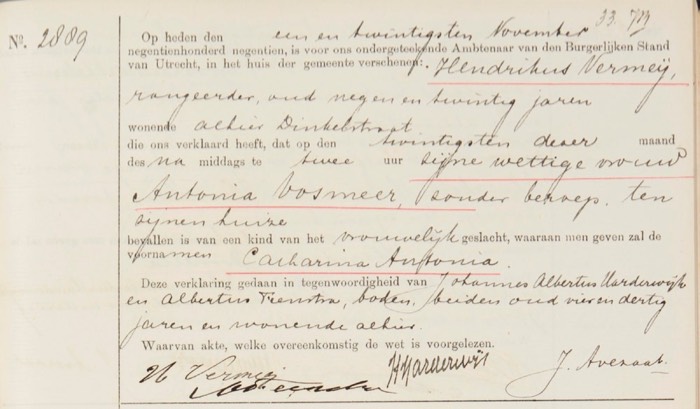 33. 7B
Nº. 2889
Op heden den een en twintigsten November
negentienhonderd negentien, is voor ons ondergeteekende Ambtenaar van den Burgerlijken Stand
van Utrecht, in het huis der gemeente verschenen: Hendrikus Vermeij,
rangeerder, oud negen en twintig jaren
wonende alhier Dinkelstraat
die ons verklaard heeft, dat op den twintigsten dezer maand
des na middags te twee uur zijne wettige vrouw
Antonia Vosmeer, zonder beroep, ten
zijnen huize
bevallen is van een kind van het vrouwelijk geslacht, waaraan men geven zal de
voornamen Catharina Antonia.
Deze verklaring gedaan in tegenwoordigheid van Johannes Albertus Harderwijk
en Albertus Feenstra, boden, beiden oud vier en dertig
jaren en wonende alhier.
Waarvan akte, welke overeenkomstig de wet is voorgelezen.
H Vermeij HHarderwijk J. Avezaat